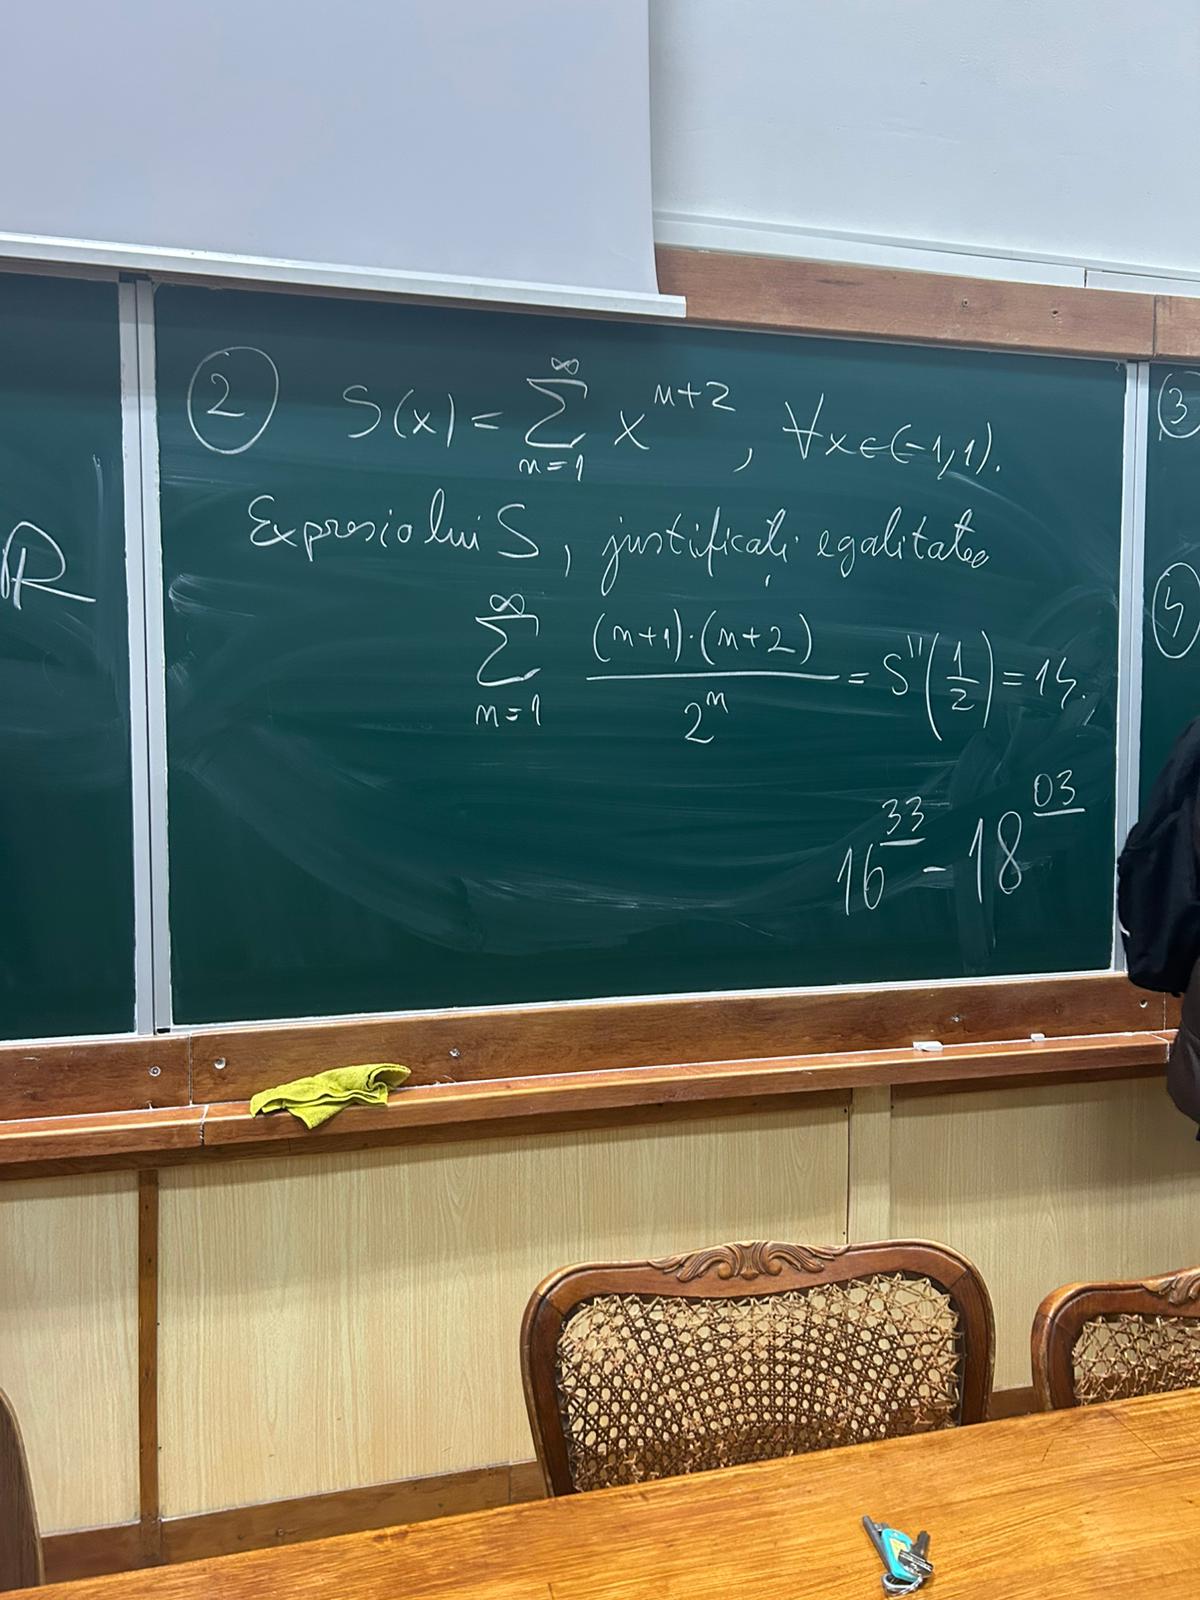 ② S(x) = ∑_{n=1}^{∞} x^{n+2}, ∀x∈(-1,1).
3
Expresia lui S, justificați egalitatea
ℝ
∑_{n=1}^{∞} \frac{(n+1)·(n+2)}{2^n} = S''(\frac{1}{2}) = 14.
4
16^{33} - 18^{03}